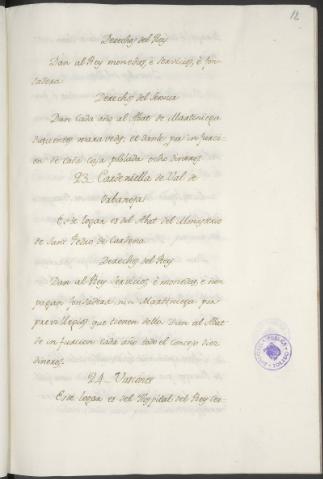 12
Derechos del Rey
Dan al Rey monedas, é servicios, é fon-
sadera.
Derechos del Sennor
Dan Cada año al Abat de Martiniega
duçientos maravedis, et danle por infurçi-
on de cada casa poblada ocho dineros
23_ Cardeniella de Val de
Orbaneja
Este logar es del Abat del Monesterio
de Sant Pedro de Cardena
Derechos del Rey
Dan al Rey servicios, é monedas, e non
pagan fonsadera, nin Martiniega por
previllegios que tienen dello. Dan al Abat
de infurcion cada año todo el Concejo diez
dineros.
24_
Este logar es del Hospital del Rey çer-